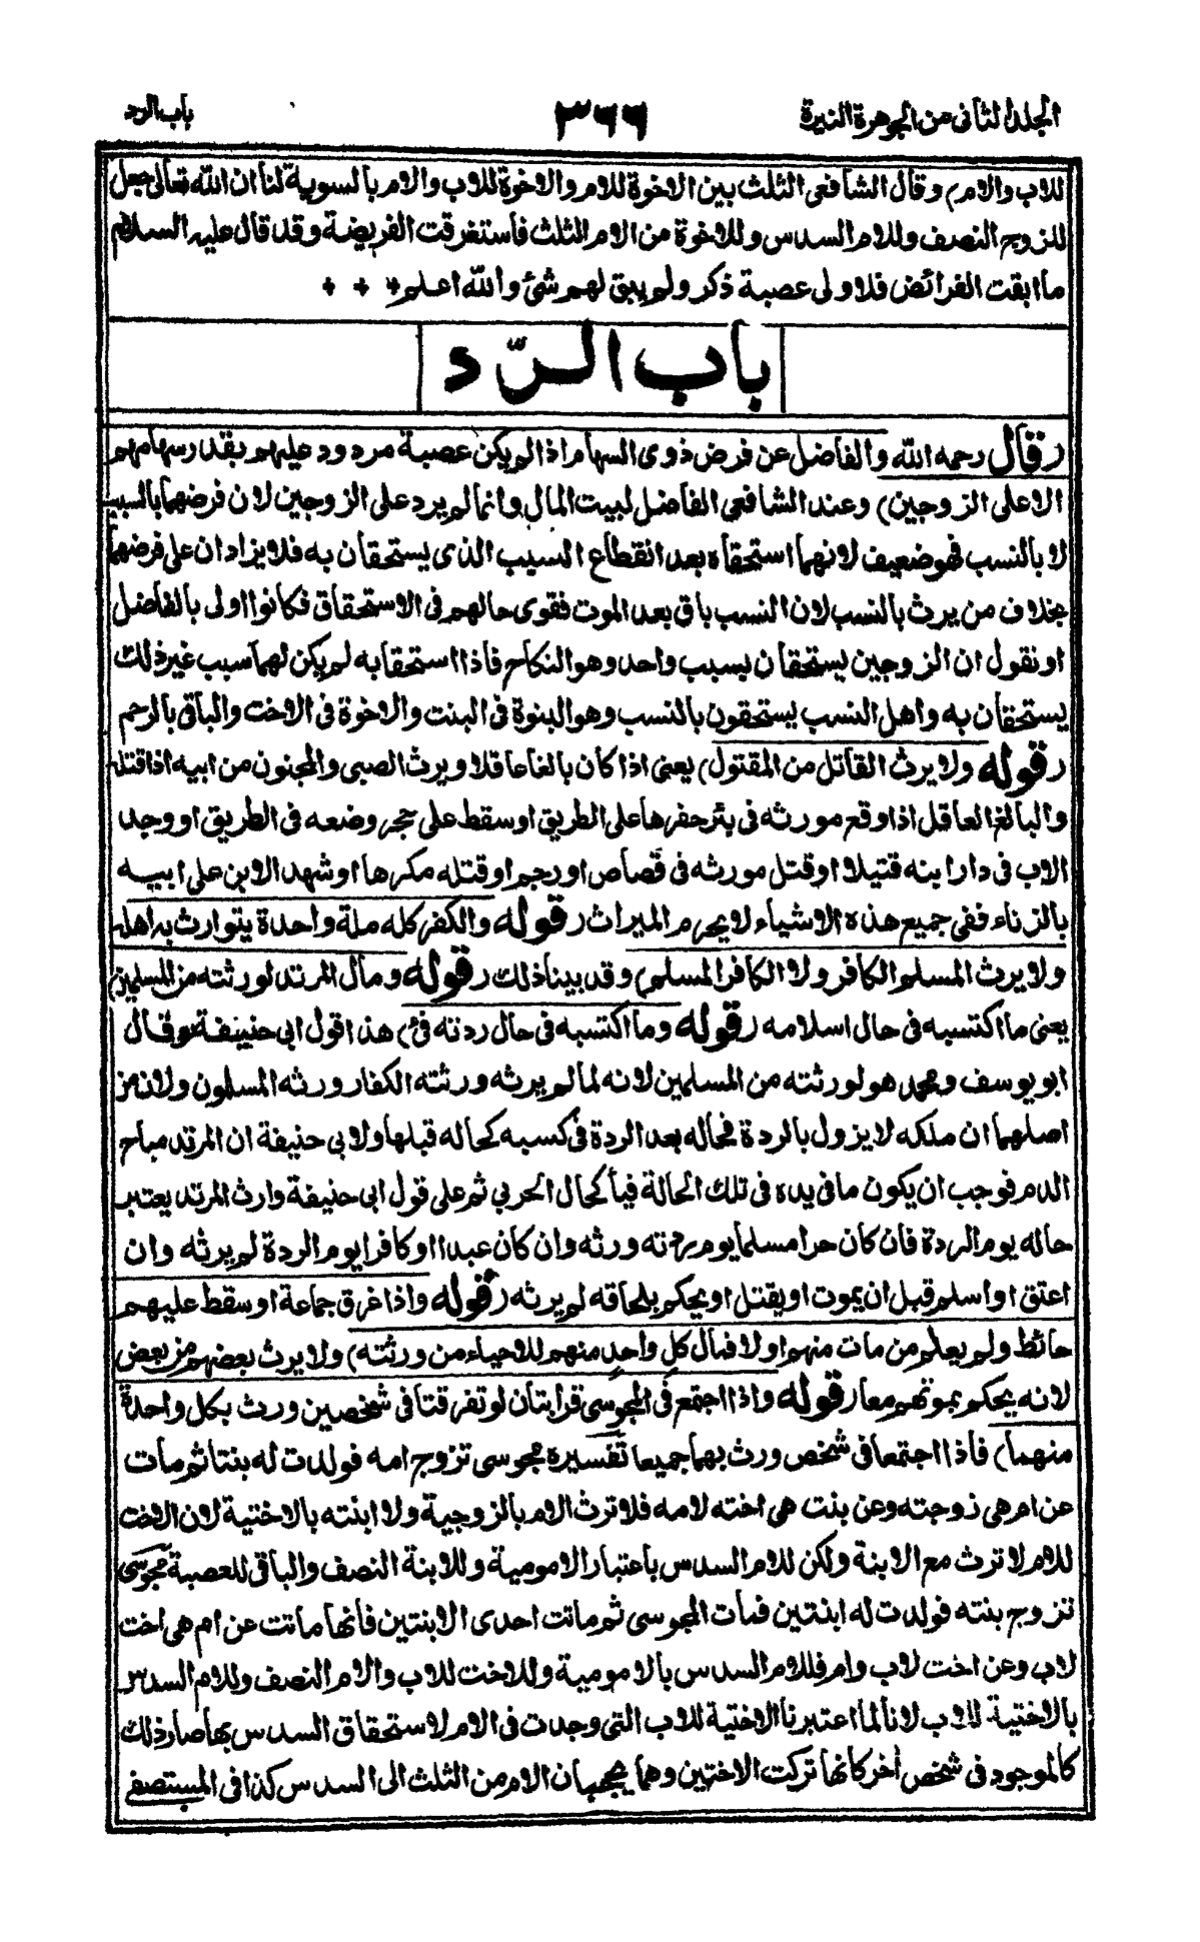 الجلد الثانى من الجوهرة النيرة
٣٦٦
باب الرد
للاب والام) وقال الشافعى الثلث بين الاخوة للام والاخوة للاب والام بالسوية لنا ان الله تعالى جعل
للزوج النصف وللام السدس وللاخوة من الام الثلث فاستغرقت الفريضة وقد قال عليه السلام
ما ابقت الفرائض فلاولى عصبة ذكر ولم يبق لهم شئ والله اعلم * * *
باب الرّد
(قال رحمه الله والفاضل عن فرض ذوى السهام اذا لم يكن عصبة مردود عليهم بقدر سهامهم
الا على الزوجين) وعند الشافعى الفاضل لبيت المال وانما لم يرد على الزوجين لان فرضهما بالسبب
لا بالنسب فهو ضعيف لانهما استحقاه بعد انقطاع السبب الذى يستحقان به فلا يزادان على فرضهما
بخلاف من يرث بالنسب لان النسب باق بعد الموت فقوى حالهم فى الاستحقاق فكانوا اولى بالفاضل
او نقول ان الزوجين يستحقان بسبب واحد وهو النكاح فاذا استحقا به لم يكن لهما سبب غير ذلك
يستحقان به واهل النسب يستحقون بالنسب وهو البنوة فى البنت والاخوة فى الاخت والباقى بالرحم
(قوله ولا يرث القاتل من المقتول) يعنى اذا كان بالغا عاقلا ويرث الصبى والمجنون من ابيه اذا قتله
والبالغ العاقل اذا وقع مورثه فى بئر حفرها على الطريق او سقط على حجر وضعه فى الطريق او وجد
الاب فى دار ابنه قتيلا او قتل مورثه فى قصاص او رجم او قتله مكرها او شهد الابن على ابيه
بالزناء ففى جميع هذه الاشياء لا يحرم الميراث (قوله والكفر كله ملة واحدة يتوارث به اهله
ولا يرث المسلم الكافر ولا الكافر المسلم) وقد بينا ذلك (قوله ومال المرتد لورثته من المسلمين)
يعنى ما اكتسبه فى حال اسلامه (قوله وما اكتسبه فى حال ردته فئ) هذا قول ابى حنيفة وقال
ابو يوسف ومحمد هو لورثته من المسلمين لانه لما لم يرثه ورثته الكفار ورثه المسلمون ولان من
اصلهما ان ملكه لا يزول بالردة فحاله بعد الردة فى كسبه كحاله قبلها ولابى حنيفة ان المرتد مباح
الدم فوجب ان يكون ما فى يده فى تلك الحالة فيأ كحال الحربي ثم على قول ابى حنيفة وارث المرتد يعتبر
حاله يوم الردة فان كان حرا مسلما يوم ردته ورثه وان كان عبدا او كافرا يوم الردة لم يرثه وان
اعتق او اسلم قبل ان يموت او يقتل او يحكم بلحاقه لم يرثه (قوله واذا غرق جماعة او سقط عليهم
حائط ولم يعلم من مات منهم اولا فمال كل واحد منهم للاحياء من ورثته) ولا يرث بعضهم من بعض
لانه يحكم بموتهم معا (قوله واذا اجتمع فى المجوسى قرابتان لو تفرقتا فى شخصين ورث بكل واحدة
منهما) فاذا اجتمعا فى شخص ورث بهما جميعا تفسيره مجوسى تزوج امه فولدت له بنتا ثم مات
عن ام هى زوجته وعن بنت هى اخته لامه فلا ترث الام بالزوجية ولا ابنته بالاختية لان الاخت
للام لا ترث مع الابنة ولكن للام السدس باعتبار الامومية وللابنة النصف والباقى للعصبة مجوسى
تزوج بنته فولدت له ابنتين فمات المجوسى ثم ماتت احدى الابنتين فانها ماتت عن ام هى اخت
لاب وعن اخت لاب وام فللام السدس بالامومية وللاخت للاب والام النصف وللام السدس
بالاختية للاب لانا لما اعتبرنا الاختية للاب التى وجدت فى الام لاستحقاق السدس بها صار ذلك
كالموجود فى شخص أخر كانها تركت الاختين وهما يحجبان الام من الثلث الى السدس كذا فى المستصفى